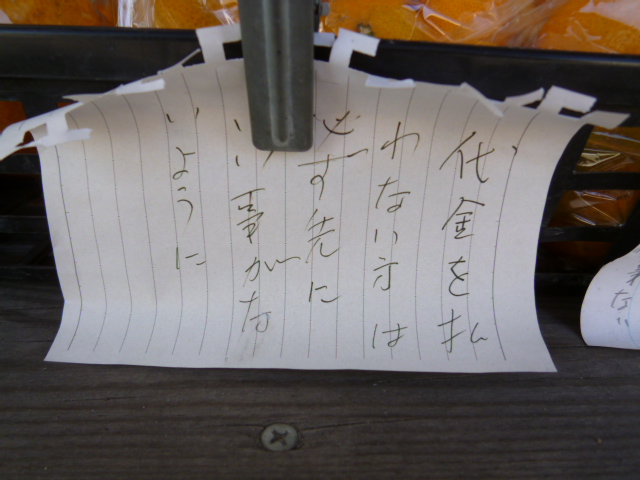 代金を払
わない方は
必ず先に
いい事がな
いように